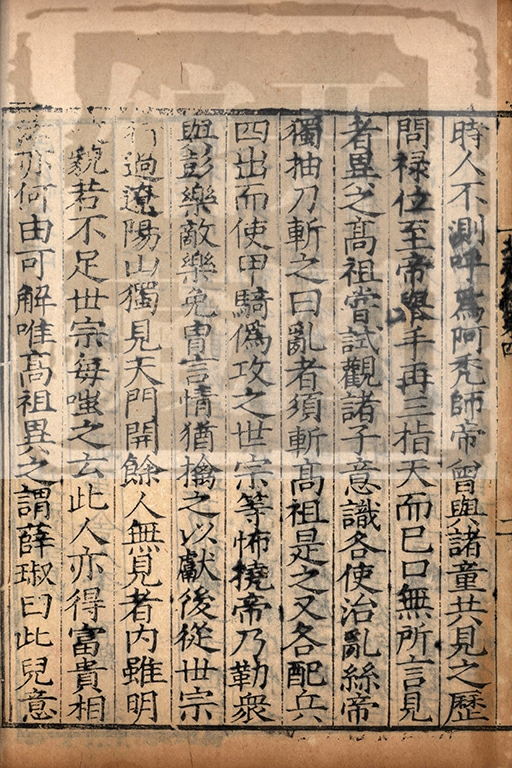 時人不測呼爲阿禿師帝曾與諸童共見之歷
問祿位至帝舉手再三指天而已口無所言見
者異之高祖嘗試觀諸子意識各使治亂絲帝
獨抽刀斬之曰亂者須斬高祖是之又各配兵
四出而使甲騎僞攻之世宗等怖撓帝乃勒衆
與彭樂敵樂免胄言情猶擒之以獻後從世宗
過遼陽山獨見天門開餘人無見者內雖明
若不足世宗每嗤之云此人亦得富貴相
亦何由可解唯高祖異之謂薛琡曰此兒意